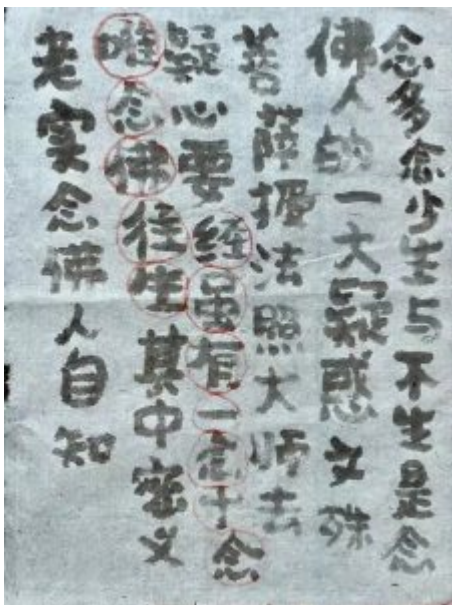 念多念少生与不生是念
佛人的一大疑惑文殊
菩萨授法照大师去
疑心要经虽有一念十念
唯念佛往生其中密义
老实念佛人自知